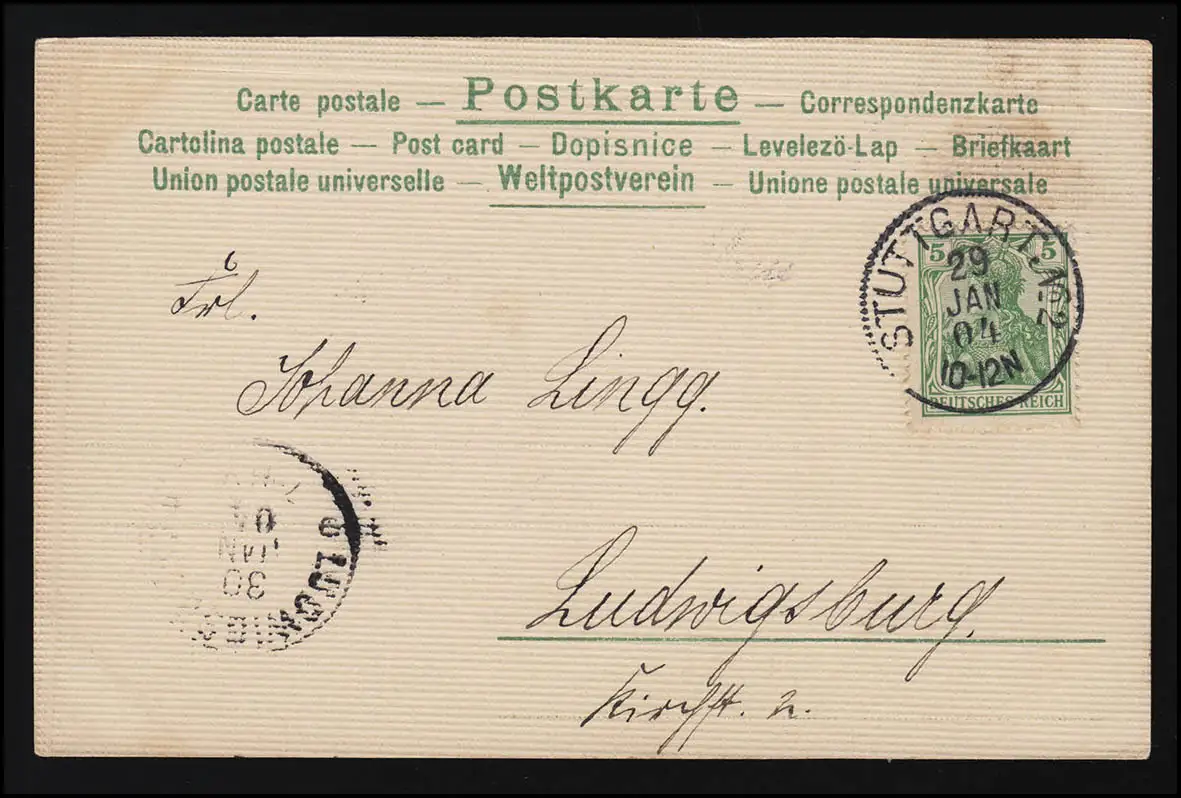 Carte postale — Postkarte — Correspondenzkarte
Cartolina postale — Post card — Dopisnice — Levelezö-Lap — Briefkaart
Union postale universelle — Weltpostverein — Unione postale universale
STUTTGART. №2
29
JAN
04
10-12N
5 5
DEUTSCHES REICH
Frl.
Johanna Lingg.
Ludwigsburg.
Kirchst. 2.
LUDW
30
JAN
04